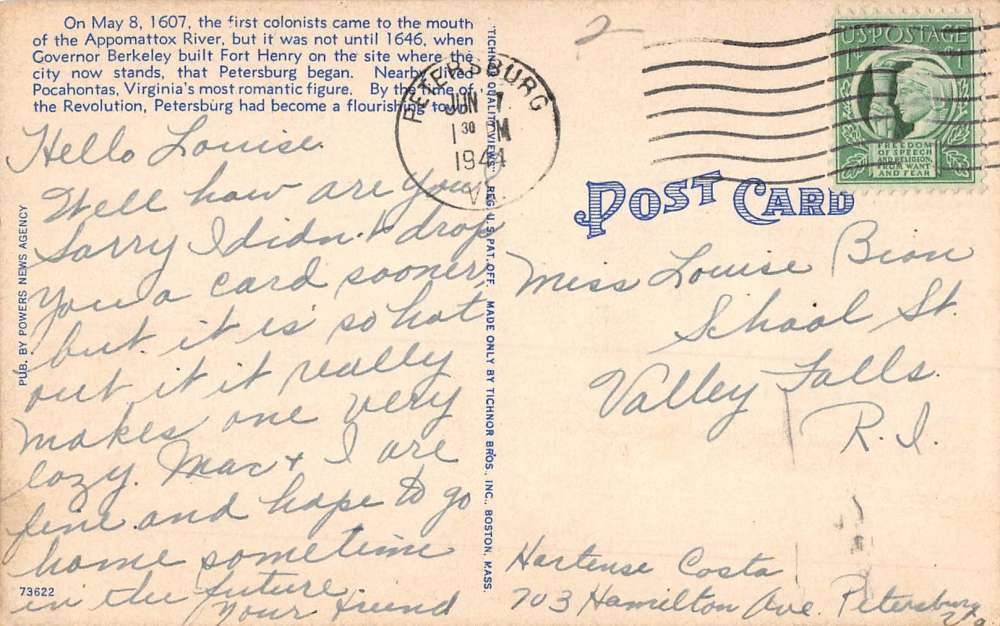 On May 8, 1607, the first colonists came to the mouth
of the Appomattox River, but it was not until 1646, when
Governor Berkeley built Fort Henry on the site where the
city now stands, that Petersburg began. Nearby lived
Pocahontas, Virginia's most romantic figure. By the time of
the Revolution, Petersburg had become a flourishing town.
Hello Louise.
Well how are you
Sorry I didn't drop
you a card sooner,
but it is so hot
out it it really
makes one very
lazy. Mac + I are
fine and hope to go
home sometime
in the future.
Your friend
73622
PUB. BY POWERS NEWS AGENCY
"TICHNOR QUALITY VIEWS" REG. U. S. PAT. OFF. MADE ONLY BY TICHNOR BROS., INC., BOSTON, MASS.
2
PETERSBURG
JUN 7
1 30 PM
1944
VA.
U.S. POSTAGE
1¢ 1¢
FREEDOM
OF SPEECH
AND RELIGION,
FROM WANT
AND FEAR
POST CARD
Miss Louise Bion
School St.
Valley Falls.
R.I.
Hortense Costa
703 Hamilton Ave. Petersburg
Va.